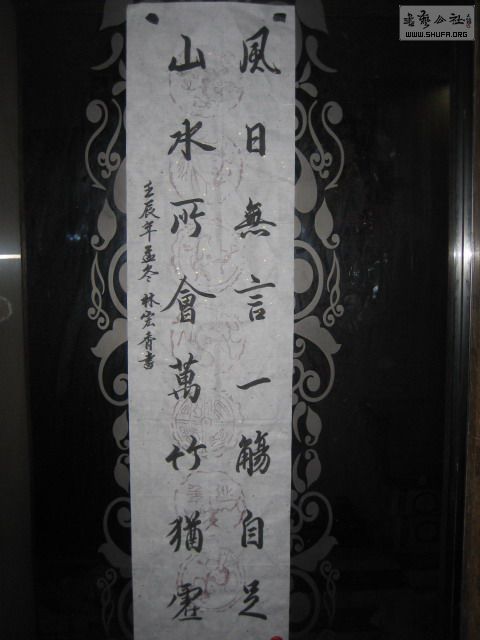 風日無言一觴自足
山水所會萬竹猶虛
壬辰年孟冬 林宏青書
書藝公社
WWW.SHUFA.ORG